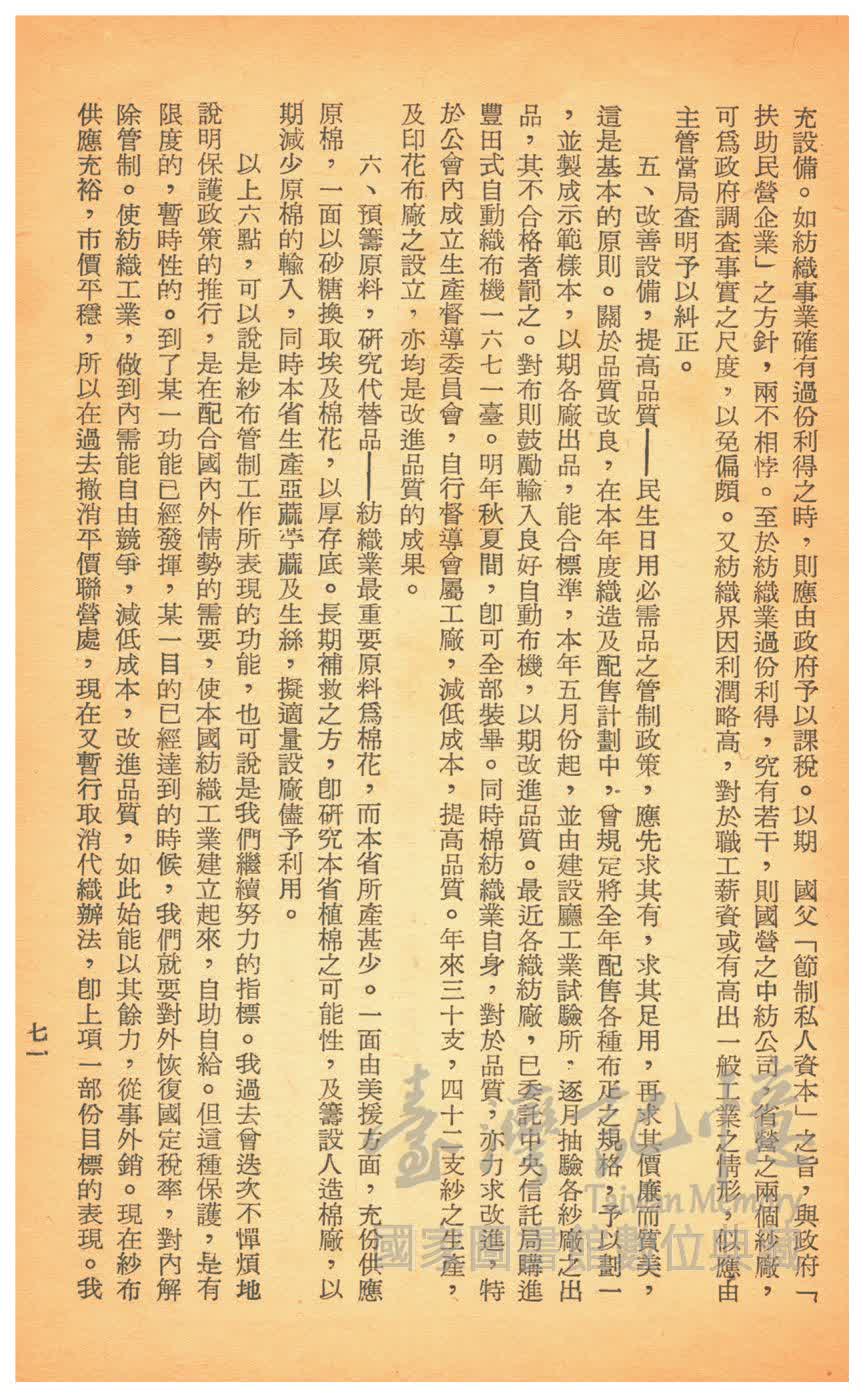 充設備。如紡織事業確有過份利得之時，則應由政府予以課稅。以期　國父「節制私人資本」之旨，與政府「
扶助民營企業」之方針，兩不相悖。至於紡織業過份利得，究有若干，則國營之中紡公司，省營之兩個紗廠，
可爲政府調查事實之尺度，以免偏頗。又紡織界因利潤略高，對於職工薪資或有高出一般工業之情形，似應由
主管當局查明予以糾正。
五、改善設備，提高品質——民生日用必需品之管制政策，應先求其有，求其足用，再求其價廉而質美，
這是基本的原則。關於品質改良，在本年度織造及配售計劃中，曾規定將全年配售各種布疋之規格，予以劃一
，並製成示範樣本，以期各廠出品，能合標準，本年五月份起，並由建設廳工業試驗所，逐月抽驗各紗廠之出
品，其不合格者罰之。對布則鼓勵輸入良好自動布機，以期改進品質。最近各織紡廠，已委託中央信託局購進
豐田式自動織布機一六七一臺。明年秋夏間，卽可全部裝畢。同時棉紡織業自身，對於品質，亦力求改進，特
於公會內成立生產督導委員會，自行督導會屬工廠，減低成本，提高品質。年來三十支，四十二支紗之生產，
及印花布廠之設立，亦均是改進品質的成果。
六、預籌原料，硏究代替品——紡織業最重要原料爲棉花，而本省所產甚少。一面由美援方面，充份供應
原棉，一面以砂糖換取埃及棉花，以厚存底。長期補救之方，卽硏究本省植棉之可能性，及籌設人造棉廠，以
期減少原棉的輸入，同時本省生產亞蔴苧蔴及生絲，擬適量設廠儘予利用。
以上六點，可以說是紗布管制工作所表現的功能，也可說是我們繼續努力的指標。我過去曾迭次不憚煩地
說明保護政策的推行，是在配合國內外情勢的需要，使本國紡織工業建立起來，自助自給。但這種保護，是有
限度的，暫時性的。到了某一功能已經發揮，某一目的已經達到的時候，我們就要對外恢復國定稅率，對內解
除管制。使紡織工業，做到內需能自由競爭，減低成本，改進品質，如此始能以其餘力，從事外銷。現在紗布
供應充裕，市價平穩，所以在過去撤消平價聯營處，現在又暫行取消代織辦法，卽上項一部份目標的表現。我
七一
臺灣記憶
Taiwan Memory
國家圖書館數位典藏